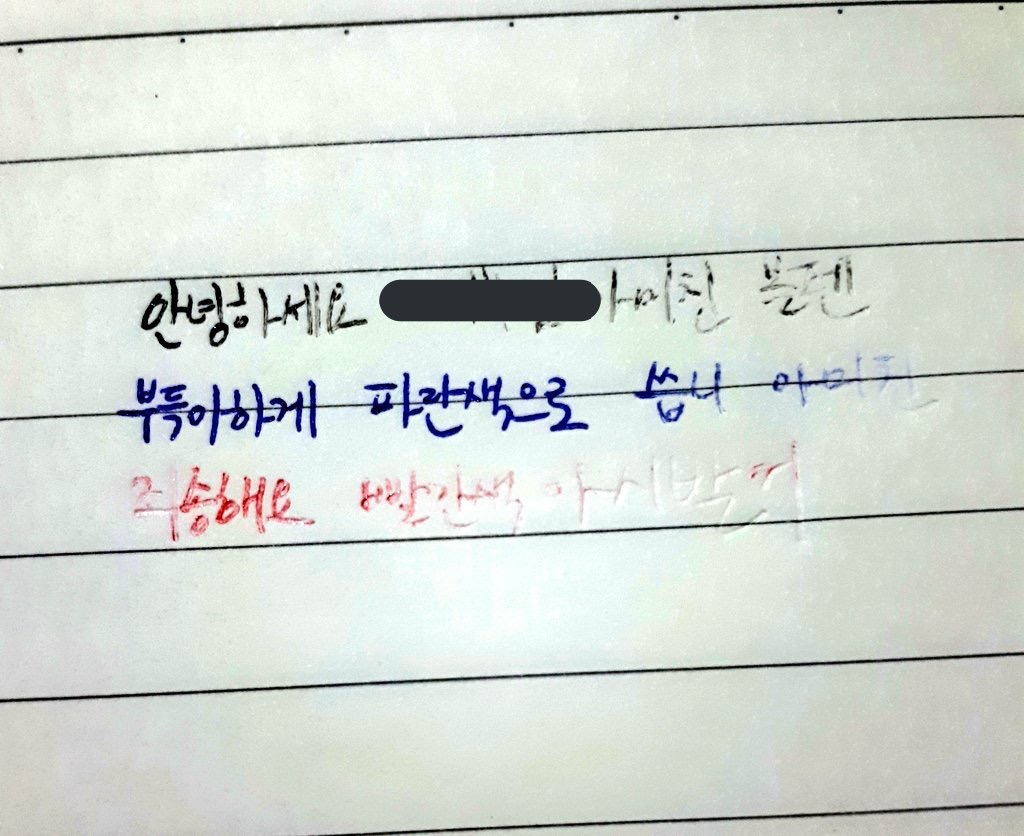 안녕하세요 아미친 볼펜
부득이하게 파란색으로 씁니 아미친
죄송해요 빨간색 아시박거